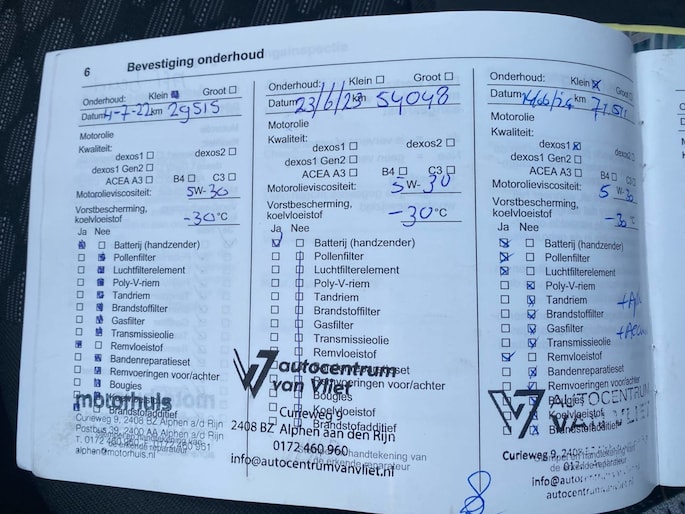 6 Bevestiging onderhoud
Onderhoud: Klein Groot
Datum 4-7-22 km 29515
Motorolie
Kwaliteit:
dexos1 dexos2
dexos1 Gen2
ACEA A3 B4 C3
Motorolieviscositeit: 5W-30
Vorstbescherming,
koelvloeistof -30 °C
Ja Nee
Batterij (handzender)
Pollenfilter
Luchtfilterelement
Poly-V-riem
Tandriem
Brandstoffilter
Gasfilter
Transmissieolie
Remvloeistof
Bandenreparatieset
Remvoeringen voor/achter
Bougies
motorhuis
Brandstofadditief
Curieweg 9, 2408 BZ Alphen a/d Rijn
Postbus 39, 2400 AA Alphen a/d Rijn
alphen@motorhuis.nl
Onderhoud: Klein Groot
Datum 23/6/23 km 54048
Motorolie
Kwaliteit:
dexos1 dexos2
dexos1 Gen2
ACEA A3 B4 C3
Motorolieviscositeit: 5W-30
Vorstbescherming,
koelvloeistof -30 °C
Ja Nee
Batterij (handzender)
Pollenfilter
Luchtfilterelement
Poly-V-riem
Tandriem
Brandstoffilter
Gasfilter
Transmissieolie
Remvloeistof
Bandenreparatieset
autocentrum
Remvoeringen voor/achter
van Vliet
Bougies
Koelvloeistof
Curieweg 9
Brandstofadditief
2408 BZ Alphen aan den Rijn
0172 460 960
info@autocentrumvanvliet.nl
Onderhoud: Klein Groot
Datum km
Motorolie
Kwaliteit:
dexos1 dexos2
dexos1 Gen2
ACEA A3 B4 C3
Motorolieviscositeit: 5 W-30
Vorstbescherming,
koelvloeistof -30 °C
Ja Nee
Batterij (handzender)
Pollenfilter
Luchtfilterelement
Poly-V-riem
Tandriem
Brandstoffilter
Gasfilter
Transmissieolie
Remvloeistof
Bandenreparatieset
Remvoeringen voor/achter
Bougies
AUTOCENTRUM
Koelvloeistof
VAN VLIET
Brandstofadditief
Curieweg 9, 2408
8